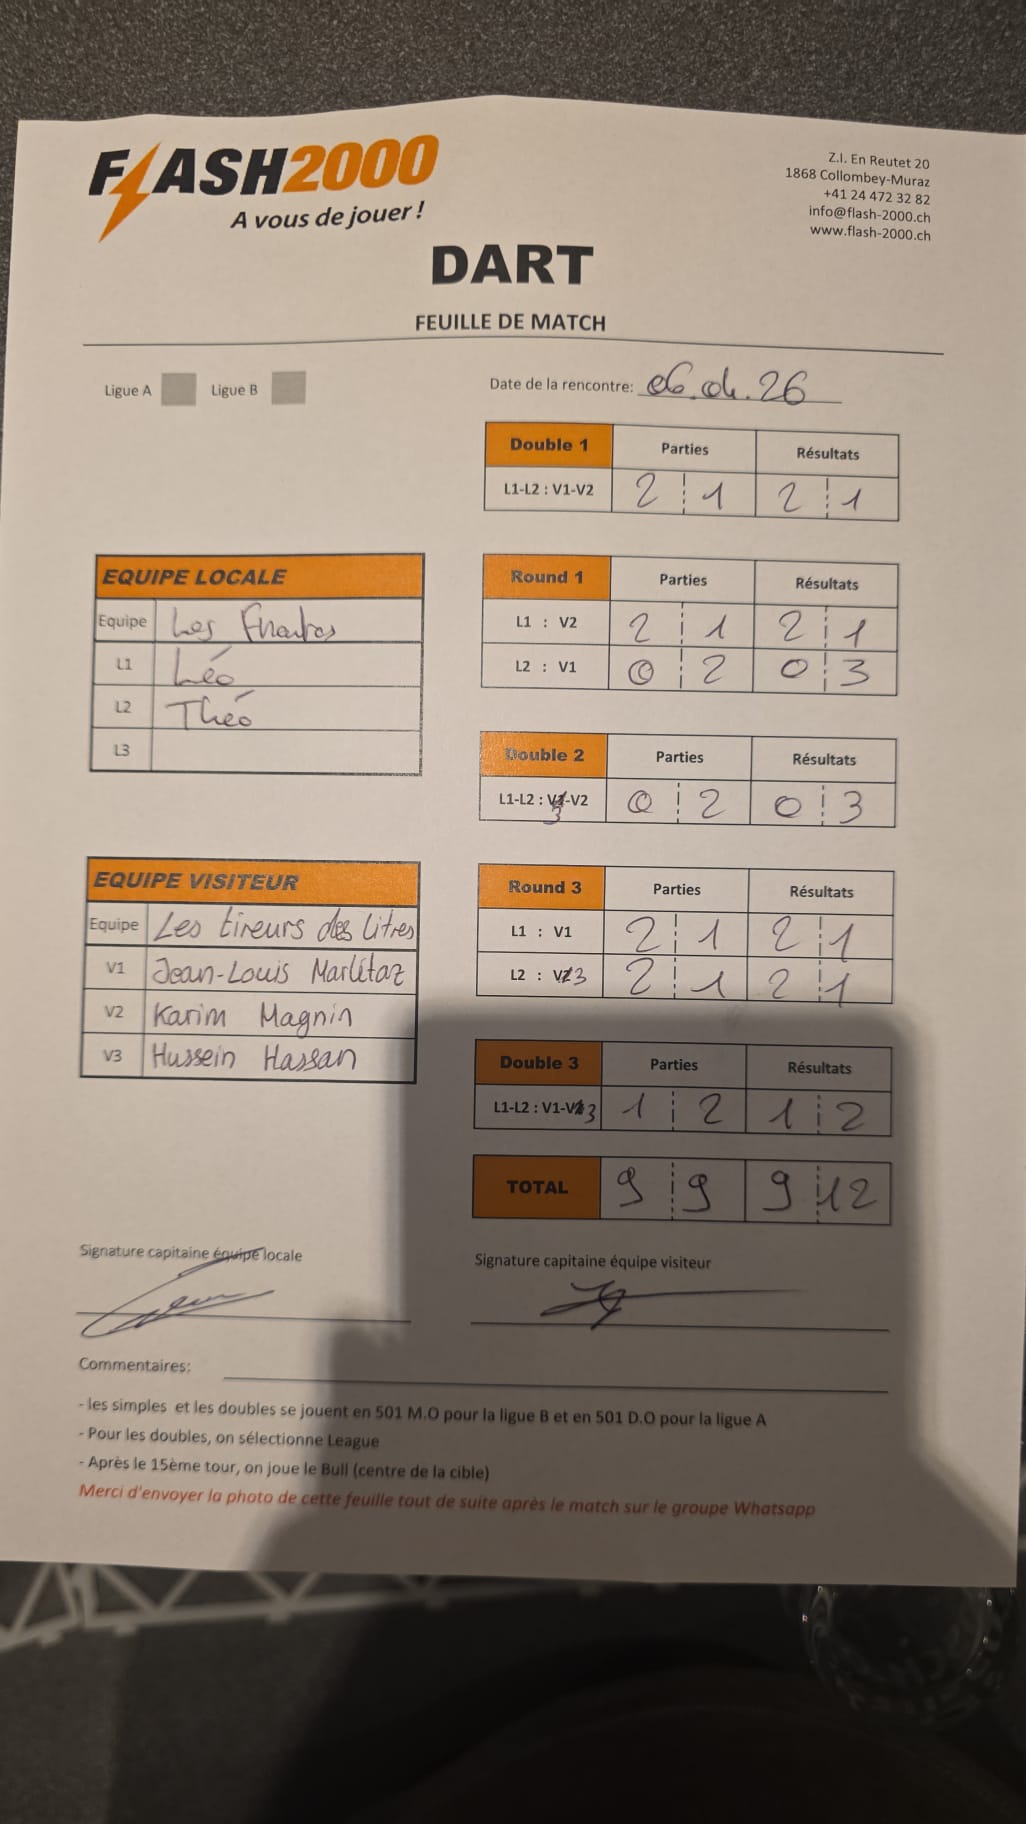 FLASH2000
A vous de jouer !
Z.I. En Reutet 20
1868 Collombey-Muraz
+41 24 472 32 82
info@flash-2000.ch
www.flash-2000.ch
DART
FEUILLE DE MATCH
Ligue A Ligue B
Date de la rencontre: 06.04.26
Double 1 Parties Résultats
L1-L2 : V1-V2 2 1 2 1
EQUIPE LOCALE
Equipe Les
L1 Léo
L2 Théo
L3
Round 1 Parties Résultats
L1 : V2 2 1 2 1
L2 : V1 0 2 0 3
Double 2 Parties Résultats
L1-L2 : V3-V2 0 2 0 3
EQUIPE VISITEUR
Equipe Les tireurs des litres
V1 Jean-Louis Marlétaz
V2 Karim Magnin
V3 Hussein Hassan
Round 3 Parties Résultats
L1 : V1 2 1 2 1
L2 : V3 2 1 2 1
Double 3 Parties Résultats
L1-L2 : V1-V3 1 2 1 2
TOTAL 9 9 9 12
Signature capitaine équipe locale
Signature capitaine équipe visiteur
Commentaires:
- les simples et les doubles se jouent en 501 M.O pour la ligue B et en 501 D.O pour la ligue A
- Pour les doubles, on sélectionne League
- Après le 15ème tour, on joue le Bull (centre de la cible)
Merci d'envoyer la photo de cette feuille tout de suite après le match sur le groupe Whatsapp